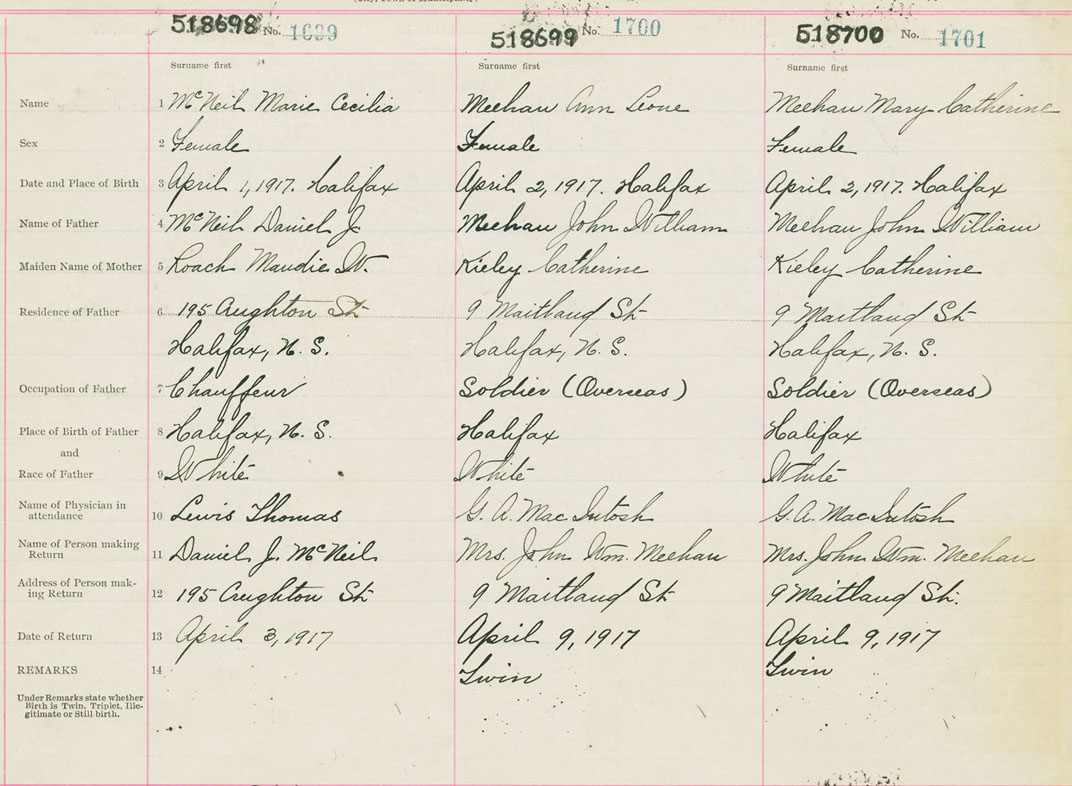 518698 No. 1699 518699 No. 1700 518700 No. 1701
Surname first Surname first Surname first
Name 1 McNeil Marie Cecilia Meehan Ann Leone Meehan Mary Catherine
Sex 2 Female Female Female
Date and Place of Birth 3 April 1, 1917. Halifax April 2, 1917. Halifax April 2, 1917. Halifax
Name of Father 4 McNeil Daniel J. Meehan John William Meehan John William
Maiden Name of Mother 5 Roach Maudie W. Kieley Catherine Kieley Catherine
Residence of Father 6 195 Creighton St 9 Maitland St 9 Maitland St
Halifax, N. S. Halifax, N. S. Halifax, N. S.
Occupation of Father 7 Chauffeur Soldier (Overseas) Soldier (Overseas)
Place of Birth of Father 8 Halifax, N. S. Halifax Halifax
and
Race of Father 9 White White White
Name of Physician in
attendance 10 Lewis Thomas G. A. MacIntosh G. A. MacIntosh
Name of Person making
Return 11 Daniel J. McNeil Mrs. John Wm. Meehan Mrs. John Wm. Meehan
Address of Person mak-
ing Return 12 195 Creighton St 9 Maitland St 9 Maitland St.
Date of Return 13 April 3, 1917 April 9, 1917 April 9, 1917
REMARKS 14 Twin Twin
Under Remarks state whether
Birth is Twin, Triplet, Ille-
gitimate or Still birth.